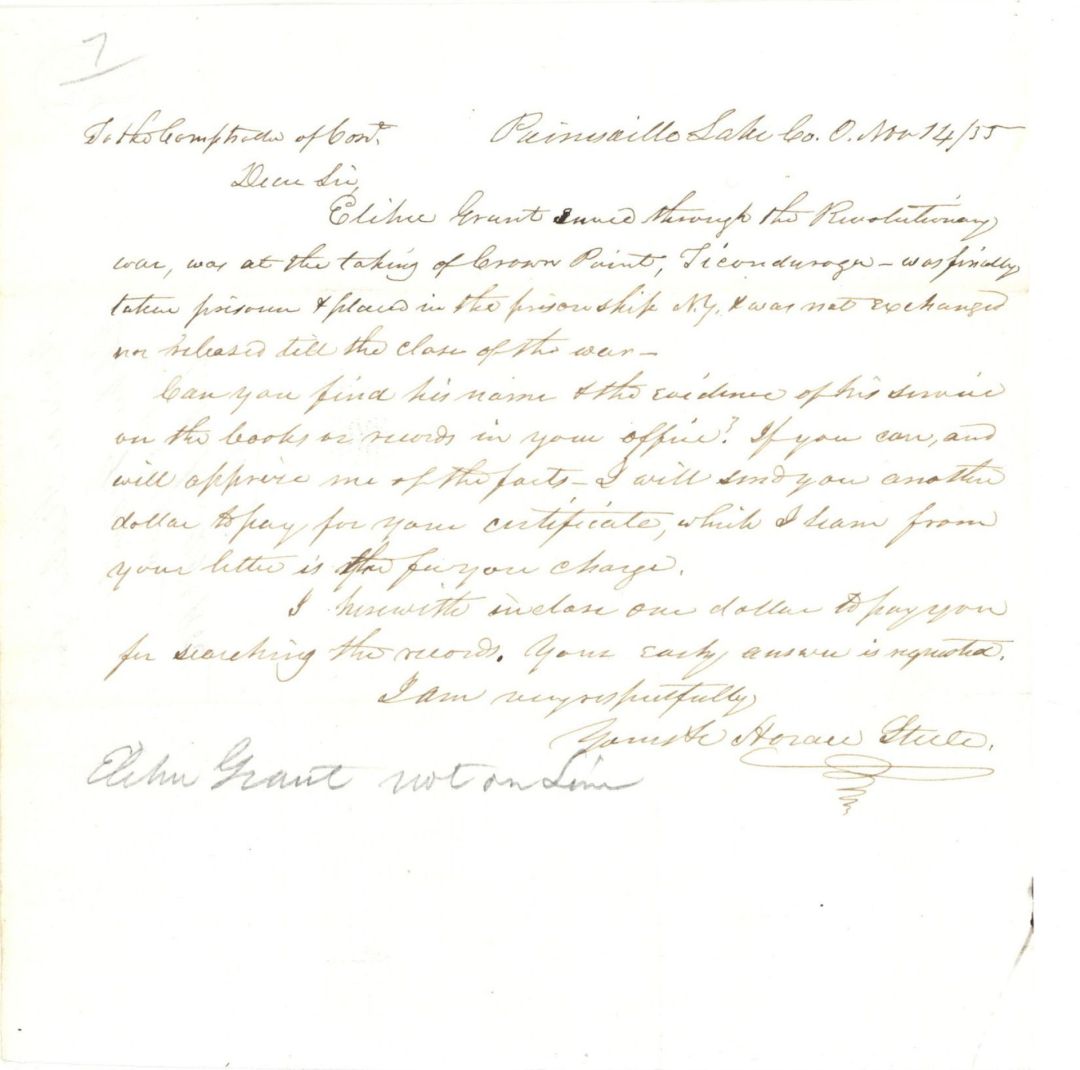 7
To the Comptroller of Con.t
Painesville Lake Co. O. Nov 14/55
Dear Sir,
Elihu Grant served through the Revolutionary
war, was at the taking of Crown Point, Ticonduroga – was finally
taken prisoner & placed in the prison ship N.Y. & was not exchanged
nor released till the close of the war –
Can you find his name & the evidence of his service
on the books or records in your office? If you can, and
will apprize me of the facts – I will send you another
dollar to pay for your certificate, which I learn from
your letter is the fee you charge.
I herewith inclose one dollar to pay you
for searching the records. Your early answer is requested.
I am very respectfully
Yours &c Horace Steele.
Elihu Grant not on